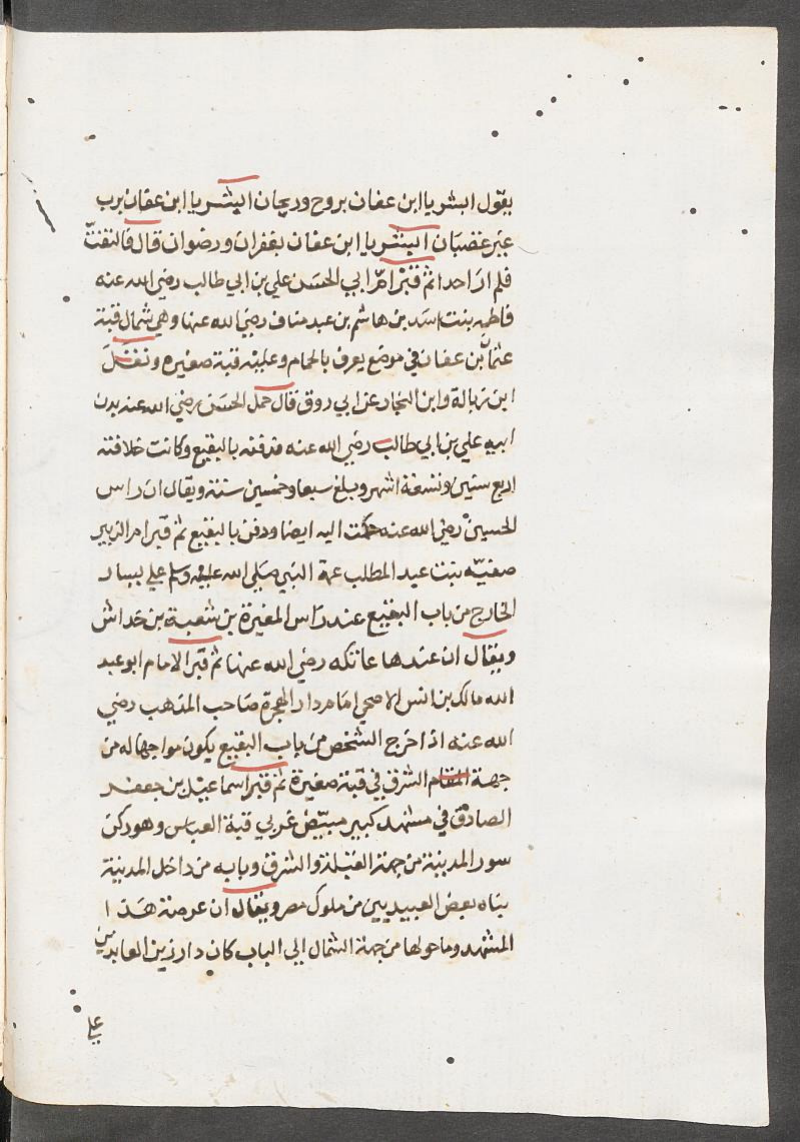 يقول ابشر يا ابن عفان بروح وريحان ابشر يا ابن عفان برب
غير غضبان ابشر يا ابن عفان بغفران ورضوان قال فالتفتّ
فلم ار احدا ثم قبر ام ابي الحسن علي بن ابي طالب رضي الله عنه
فاطمه بنت اسد بن هاشم بن عبد مناف رضي الله عنها وهي شمال قبة
عثمان بن عفان في موضع يعرف بالحمام وعليه قبة صغيره ونقل
ابن زبالة وابن النجار عن ابي روق قال حمل الحسن رضي الله عنه بدن
ابيه علي بن ابي طالب رضي الله عنه فدفنه بالبقيع وكانت خلافته
اربع سنين وتسعة اشهر وبلغ سبعا وخمسين سنة ويقال ان راس
الحسين رضي الله عنه حملت اليه ايضا ودفن بالبقيع ثم قبر ام الزبير
صفيّه بنت عبد المطلب عمة النبي صلى الله عليه وسلم على يسار
الخارج من باب البقيع عند راس المغيرة بن شعبة بن خداش
ويقال ان عندها عاتكه رضي الله عنها ثم قبر الامام ابو عبد
الله مالك بن انس الاصحي امام دار الهجرة صاحب المذهب رضي
الله عنه اذا خرج الشخص من باب البقيع يكون مواجها له من
جهة المقام الشرقي في قبة صغيرة ثم قبر اسماعيل بن جعفر
الصادق في مشهد كبير مبيّض غربي قبة العباس وهو ركن
سور المدينة من جهة القبلة والشرق وبابه من داخل المدينة
بناه بعض العبيديين من ملوك مصر ويقال ان عرصة هذا
المشهد وما حولها من جهة الشمال الى الباب كان دار زين العابدين
علي